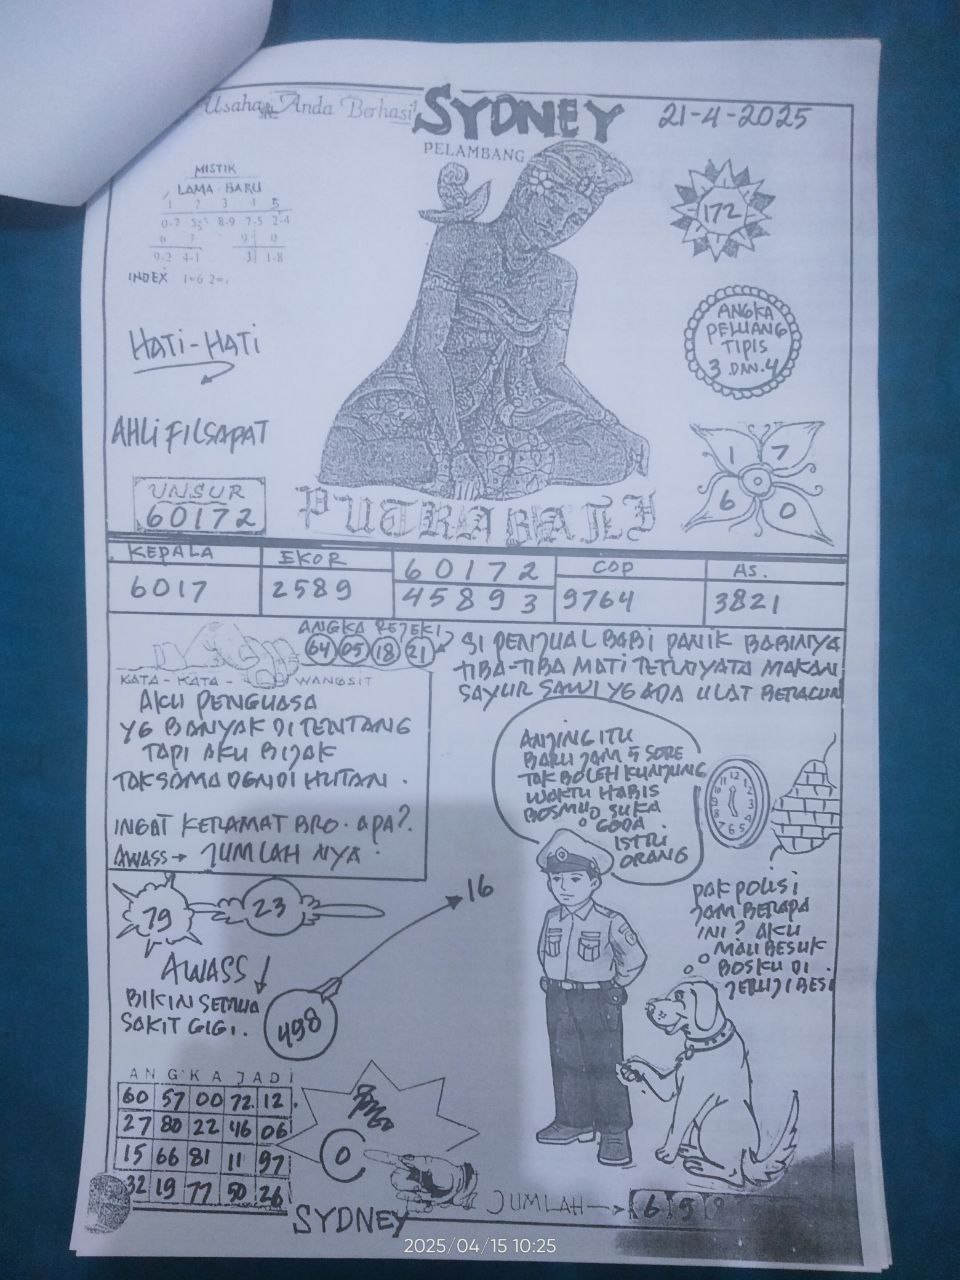 Usaha Anda Berhasil
SYDNEY
21-4-2025
PELAMBANG
MISTIK
LAMA - BARU
1 2 3 4 5
0-7 8-9 7-5 2-4
6 7 9 0
9-2 4-1 3 1-8
INDEX 1=6 2=
172
HATI-HATI
ANGKA
PELUANG
TIPIS
3 DAN 4
AHLI FILSAPAT
1 7
6 0
UNSUR
60172
PUTRA BALI
KEPALA
6017
EKOR
2589
60172
45893
COP
9764
AS.
3821
ANGKA REJEKI
64 05 18 21
SI PENJUAL BABI PANIK BABINYA
TIBA-TIBA MATI TETUNYATA MAKAN
SAYUR SAWI YG ADA ULAT BERACUN
KATA - KATA - WANGSIT
AKU PENGUASA
YG BANYAK DITENTANG
TAPI AKU BIJAK
TAK SAMA DENDI HUTAN.
INGAT KERAMAT BRO. APA?.
AWASS → JUMLAH NYA.
ANJING ITU
BARU JAM 5 SORE
TAK BOLEH KUNJUNG
WAKTU HABIS
BOSMU SUKA
GODA
ISTRI
ORANG
PAK POLISI
JAM BERAPA
INI? AKU
MAU BESUK
BOSKU DI
JERUJI BESI
79
23
16
AWASS
BIKIN SEMUA
SAKIT GIGI.
498
ANGKA JADI
60 57 00 72 12
27 80 22 46 06
15 66 81 11 97
32 19 77 50 26
0
SYDNEY
JUMLAH → 6 5
2025/04/15 10:25